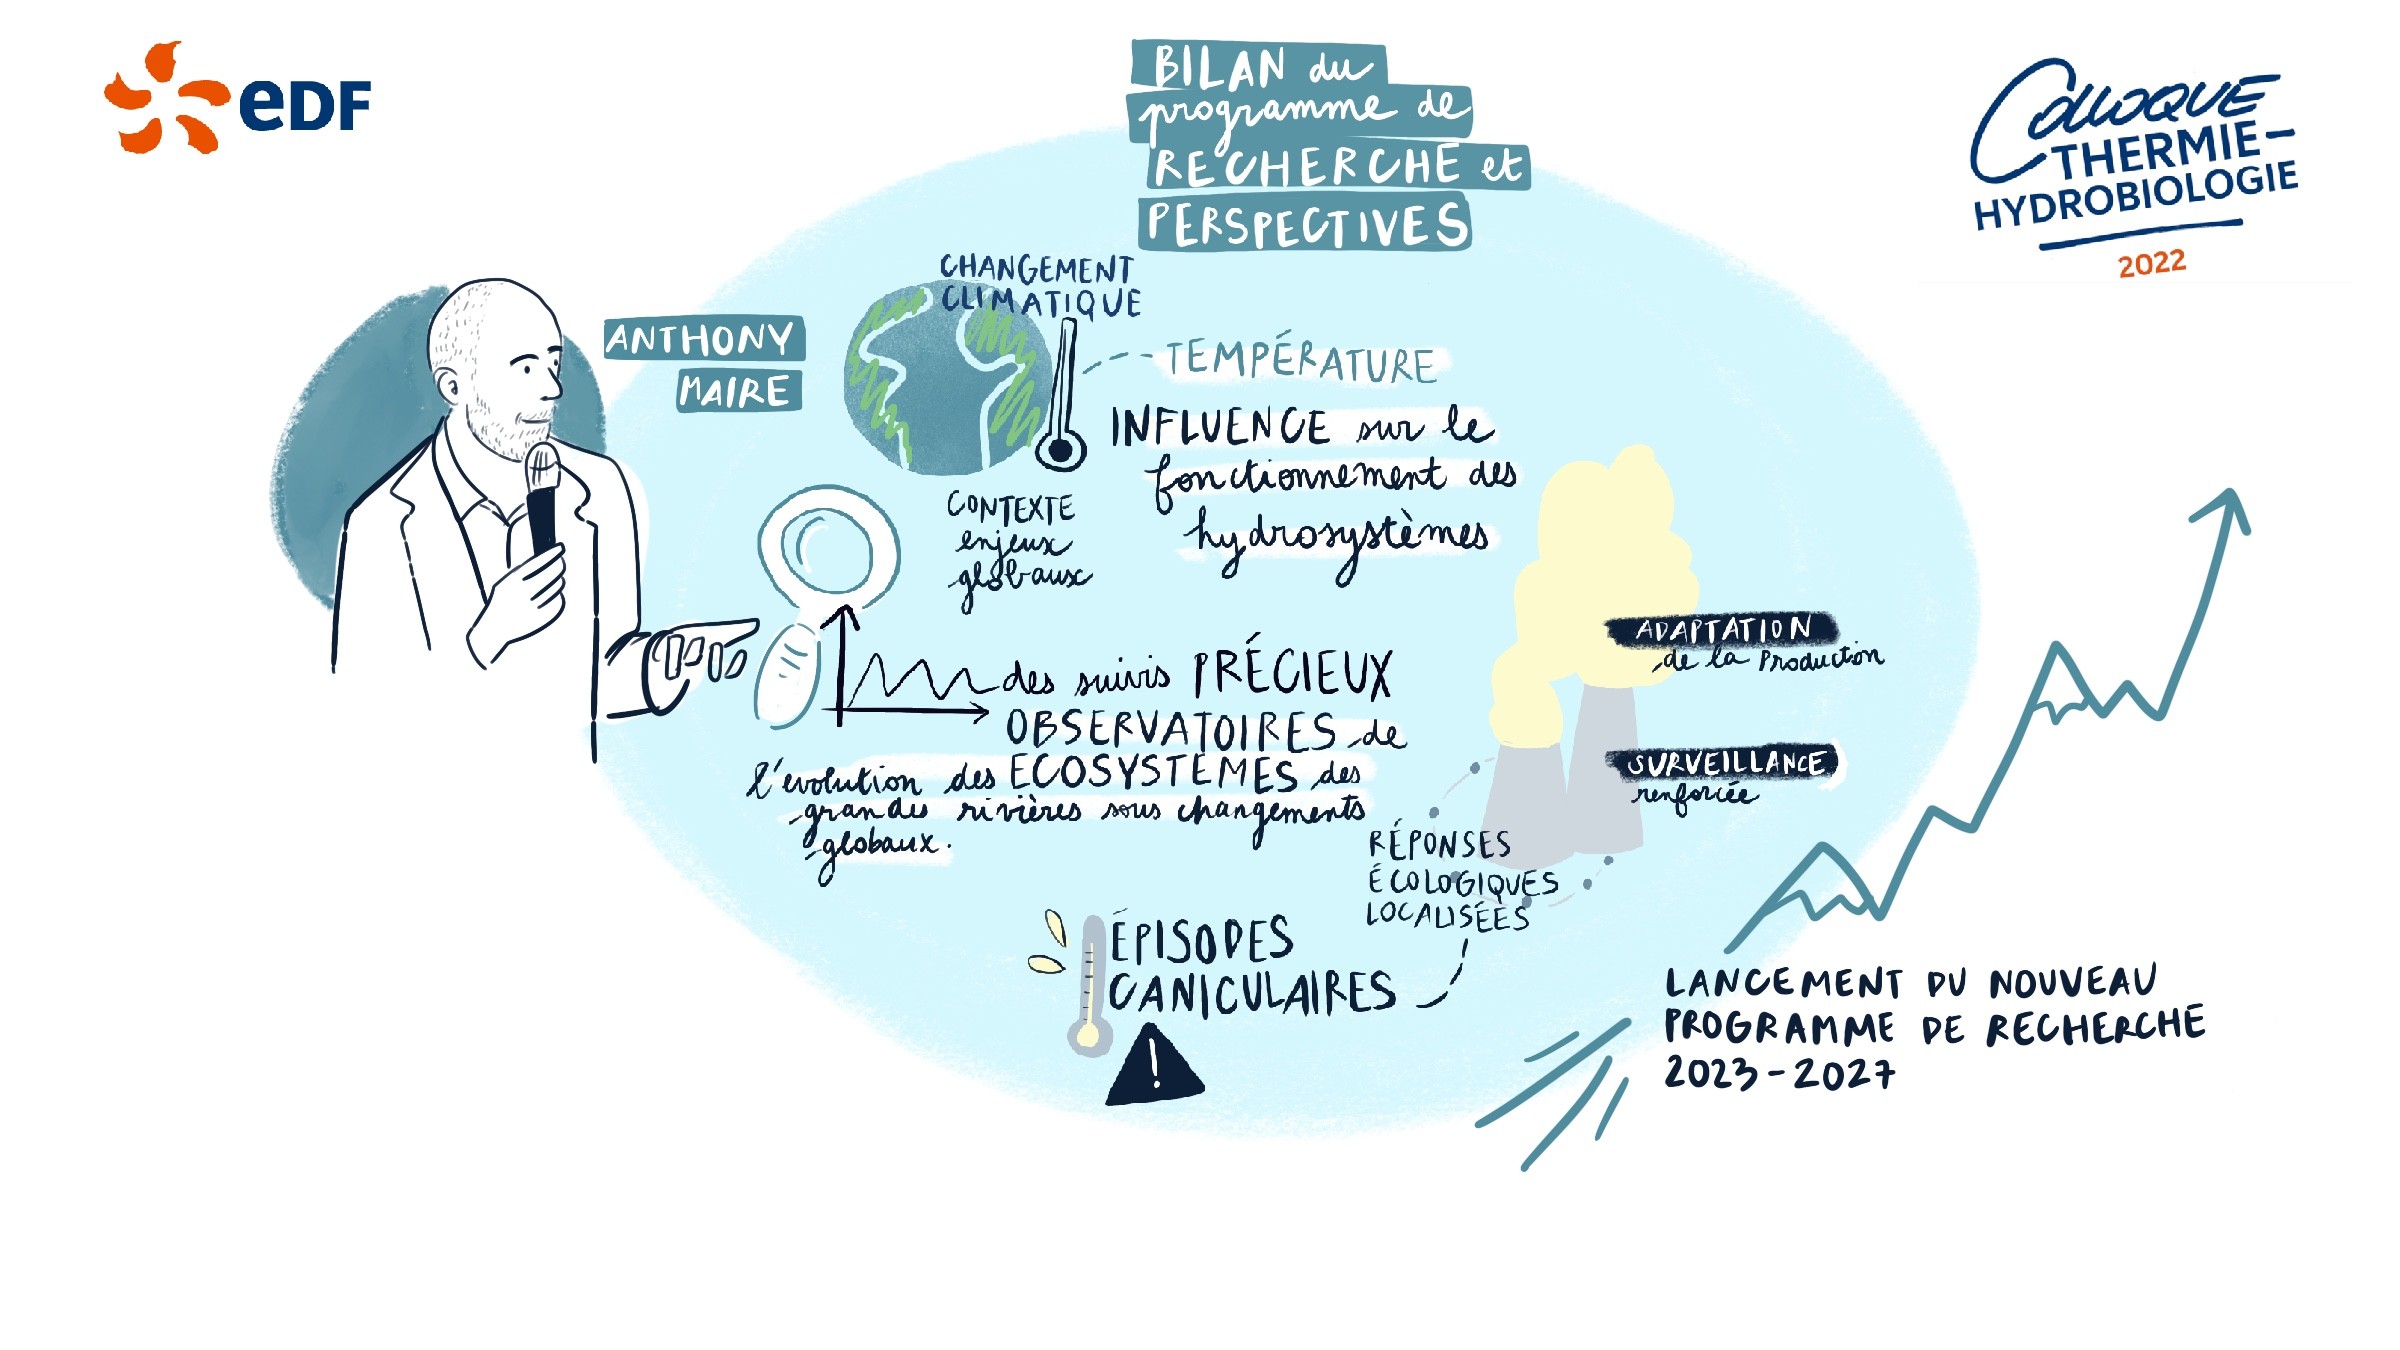 eDF
BILAN du
programme de
RECHERCHE et
PERSPECTIVES
COLLOQUE
THERMIE-
HYDROBIOLOGIE
2022
ANTHONY
MAIRE
CHANGEMENT
CLIMATIQUE
TEMPÉRATURE
INFLUENCE sur le
fonctionnement des
hydrosystèmes
CONTEXTE
enjeux
globaux
des suivis PRÉCIEUX
OBSERVATOIRES de
l'évolution des ECOSYSTÈMES des
grandes rivières sous changements
globaux.
ADAPTATION
de la Production
SURVEILLANCE
renforcée
RÉPONSES
ÉCOLOGIQUES
LOCALISÉES
ÉPISODES
CANICULAIRES
!
LANCEMENT DU NOUVEAU
PROGRAMME DE RECHERCHE
2023-2027